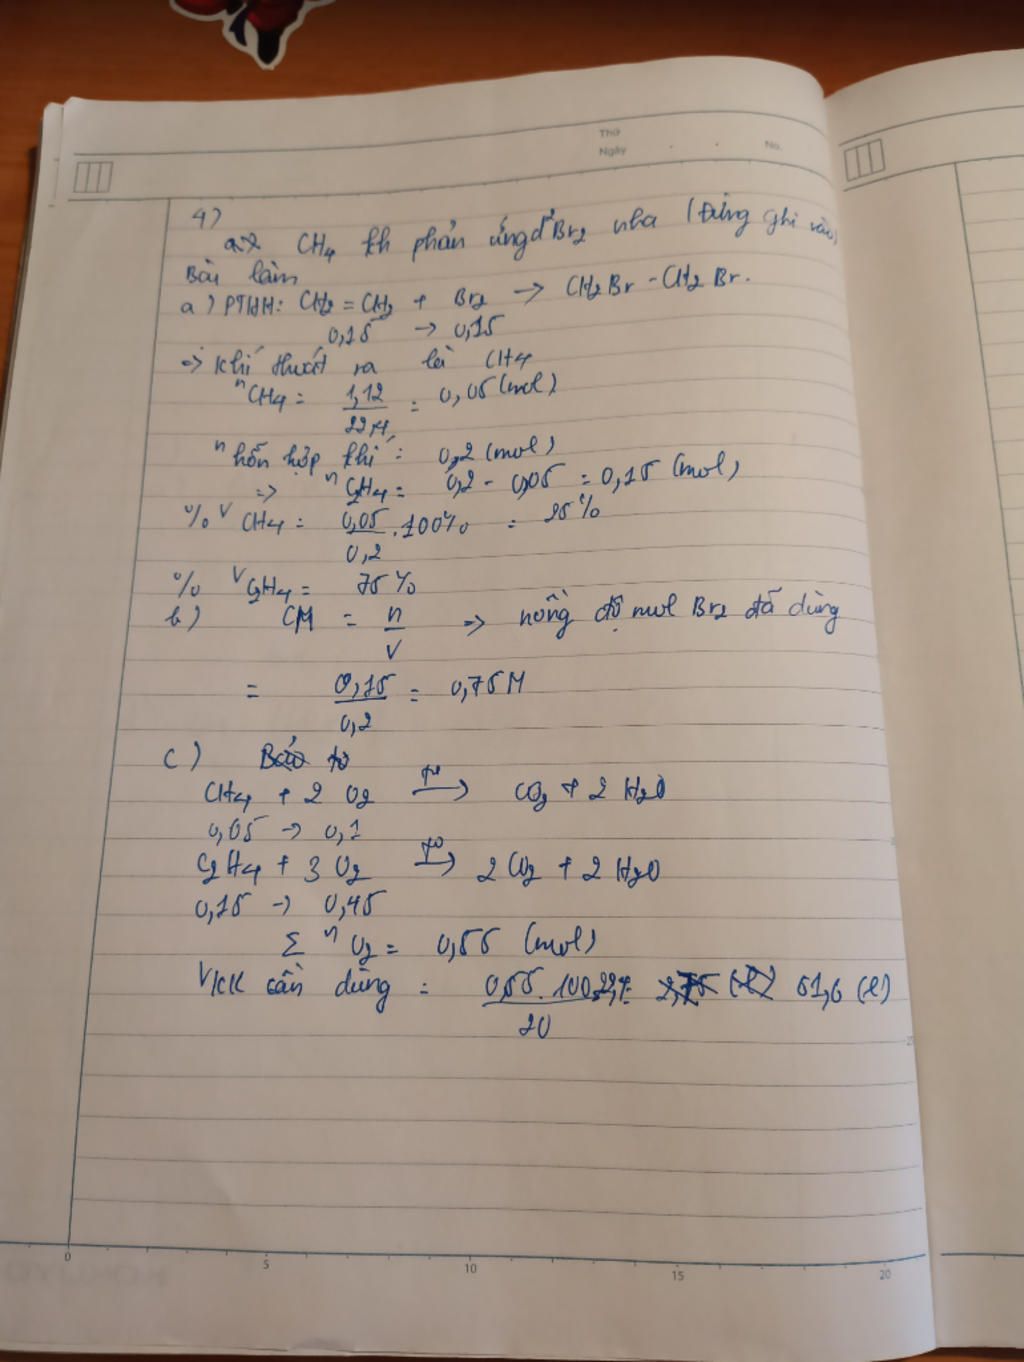 Thứ
Ngày . . No.
4)
CH4 kh phản ứng đc Br2 nha (Đừng ghi vào)
Bài làm
a) PTHH: CH2 = CH2 + Br2 → CH2Br - CH2Br.
0,15 → 0,15
=> khí thoát ra là CH4
nCH4 = 1,12 / 22,4 = 0,05 (mol)
n hỗn hợp khí = 0,2 (mol)
=> nC2H4 = 0,2 - 0,05 = 0,15 (mol)
% V CH4 = 0,05 / 0,2 . 100% = 25%
% V C2H4 = 75%
b) CM = n / V => nồng độ mol Br2 đã dùng
= 0,15 / 0,2 = 0,75M
c)
CH4 + 2 O2 t° → CO2 + 2 H2O
0,05 → 0,1
C2H4 + 3 O2 t° → 2 CO2 + 2 H2O
0,15 → 0,45
Σ n O2 = 0,55 (mol)
VKK cần dùng = 0,55.100.22,4 / 20 = 61,6 (l)
0 5 10 15 20